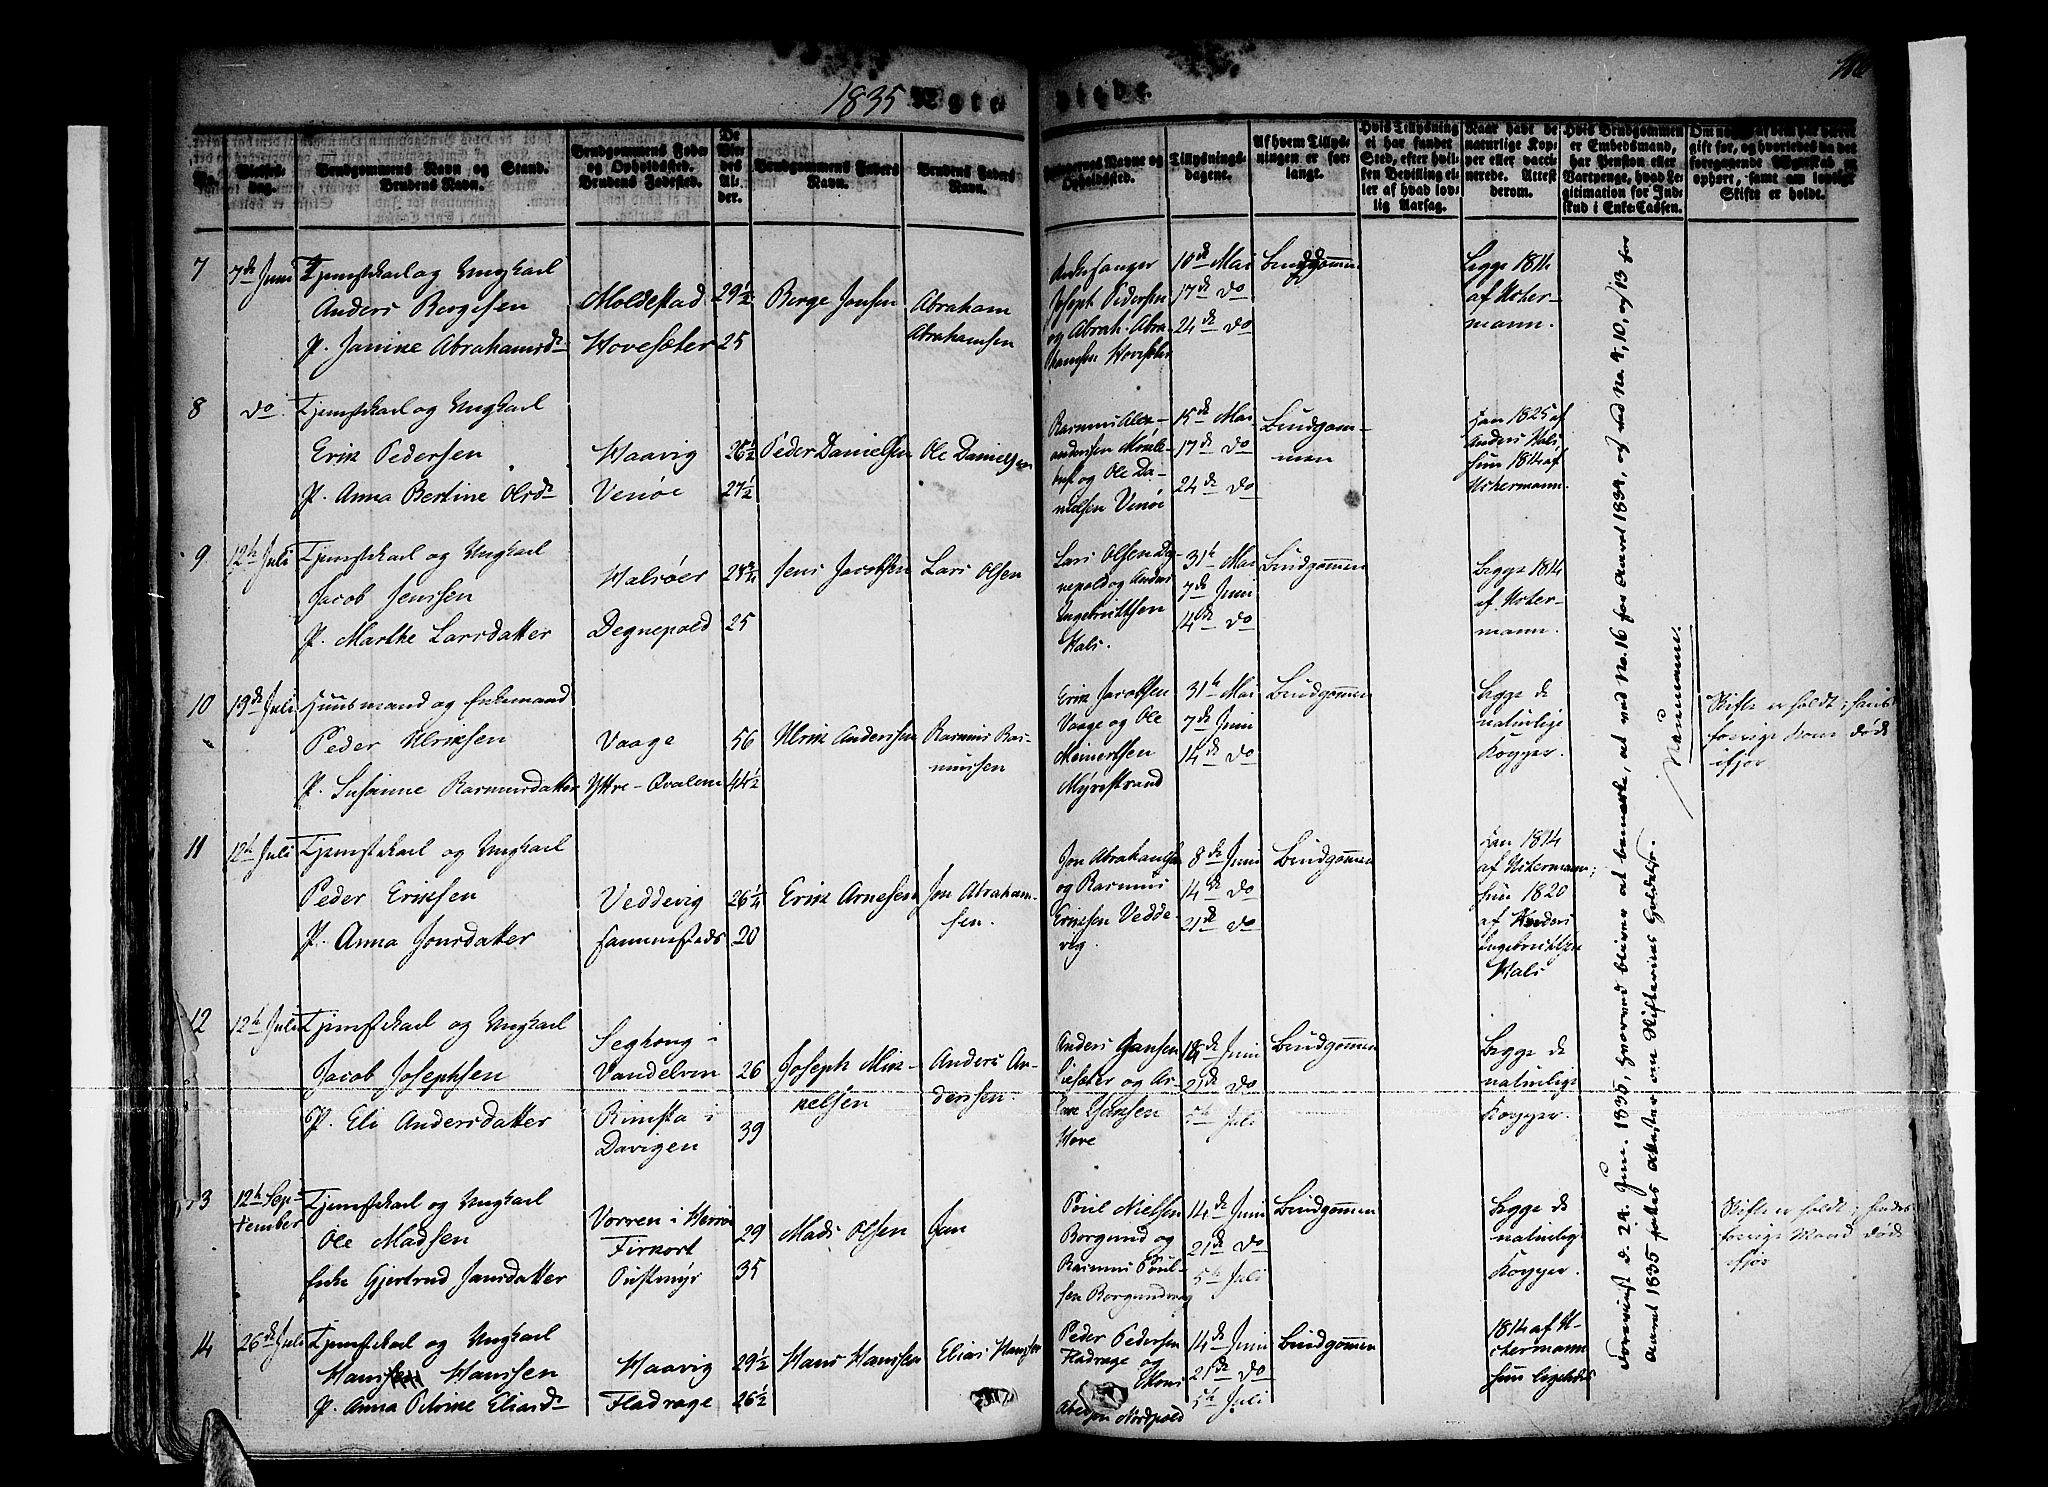 1835 Ægte viede.
No.
Vielses-
dag.
Brudgommens Navn og Stand.
Brudens Navn.
Brudgommens Føde-
og Opholdssted.
Brudens Fødested.
De
Vie-
des
Al-
der.
Brudgommens Faders
Navn.
Brudens Faders
Navn.
Navne og
Opholdssted.
Tillysnings-
dagene.
Af hvem Tillys-
ningen er for-
langt.
Hvis Tillysning
ei har fundet
Sted, efter hvil-
ken Bevilling el-
ler af hvad lov-
lig Aarsag.
Naar havt de
naturlige Kop-
per eller vacci-
nerede. Attest
derom.
Hvis Brudgommen
er Embedsmand,
har Pension eller
Vartpenge, hvad Le-
gitimation for Ind-
skud i Enke-Cassen.
Om nogen af dem har været
gift før, og hvorledes da det
foregaaende Ægteskab er
ophørt, samt om lovligt
Skifte er holdt.
7
7de Juni
Tjenstekarl og Ungkarl
Anders Bergesen
P. Janike Abrahamsd.
Moldestad
Hovesæter
29½
25
Berge Jonsen
Abraham
Abrahamsen
Joseph Pedersen
og Abrah. Abra-
hamsen Hovesæter
10de Mai
17de do
24de do
Brudgommen
Begge 1814
af Ucker-
mann.
8
do
Tjenstekarl og Ungkarl
Erik Pedersen
P. Anna Bertine Olsd.
Haavig
Venöe
26½
27½
Peder Danielsen
Ole Danielsen
Rasmus Alex-
andersen
og Ole Da-
nielsen Venöe
15de Mai
17de do
24de do
Brudgom-
men
Han 1825 af
Anders Hals,
hun 1814 af
Uckermann.
9
12te Juli
Tjenstekarl og Ungkarl
Jacob Jenssen
P. Marthe Larsdatter
Halsöer
Degnepold
28¾
25
Jens Jacobsen
Lars Olsen
Lars Olsen Deg-
nepold og Anders
Ingebrictsen
Hals.
31te Mai
7de Juni
14de do
Brudgommen
Begge 1814
af Ucker-
mann.
10
19de Juli
Huusmand og Enkemand
Peder Ulriksen
P. Susanne Rasmusdatter
Vaage
Yttre-Qvalen
56
44½
Ulrik Anderssen
Rasmus Ras-
mussen
Erik Jacobsen
Vaage og Ole
Meinertsen
Myrestrand
31te Mai
7de Juni
14de do
Brudgommen
Begge de
naturlige
Kopper.
Skifte er holdt; hans
forrige Kone døde
ifjor
11
12te Juli
Tjenstekarl og Ungkarl
Peder Eriksen
P. Anna Jonsdatter
Veddevig
26¼
20
Erik Arnesen
Jon Abraham-
sen.
Jon Abrahamsen
og Rasmus
Eriksen Vedde-
vig.
8de Juni
14de do
21de do
Brudgommen
Han 1814
af Uckermann;
hun 1820
af Anders
Ingebrictsen
Hals
12
12te Juli
Tjenstekarl og Ungkarl
Jacob Josephsen
P. Eli Andersdatter
i
Vandelven
Rimsta i
Davigen
26
39
Joseph Mik-
kelsen
Anders An-
derssen.
Anders Jansen
og Ar-
Hove
14de Juni
21de do
5te Juli
Brudgommen
Begge de
naturlige
Kopper.
13
12te Sep-
tember
Tjenstekarl og Ungkarl
Ole Madsen
Enke Gjertrud Jansdatter
Vorren i Herrøe
29
35
Mads Olsen
Jan
Poul Nielsen
Borgund og
Rasmus Poul-
sen Borgundvaag
14de Juni
21de do
5te Juli
Brudgommen
Begge de
naturlige
Kopper.
Skifte er holdt; hendes
forrige Mand døde
ifjor
14
26de Juli
Tjenstekarl og Ungkarl
Hans Hanssen
P. Anna Petrine Eliasd.
Haavig
Fladrage
29½
26½
Hans Hanssen
Elias Hanssen
Peder Pedersen
Fladrage og
Nordpold
14de Juni
21de do
5te Juli
Brudgommen
1814 af U-
ckermann
hun ligeledes
Foreviist d. 24. Juni 1836, hvorved bliver at bemærke, at ved No. 16 for Aaret 1834, og ved No. 4, 10, og 13 for
Aaret 1835 fattes Attester om Skifternes Holdelse.
Neumann.